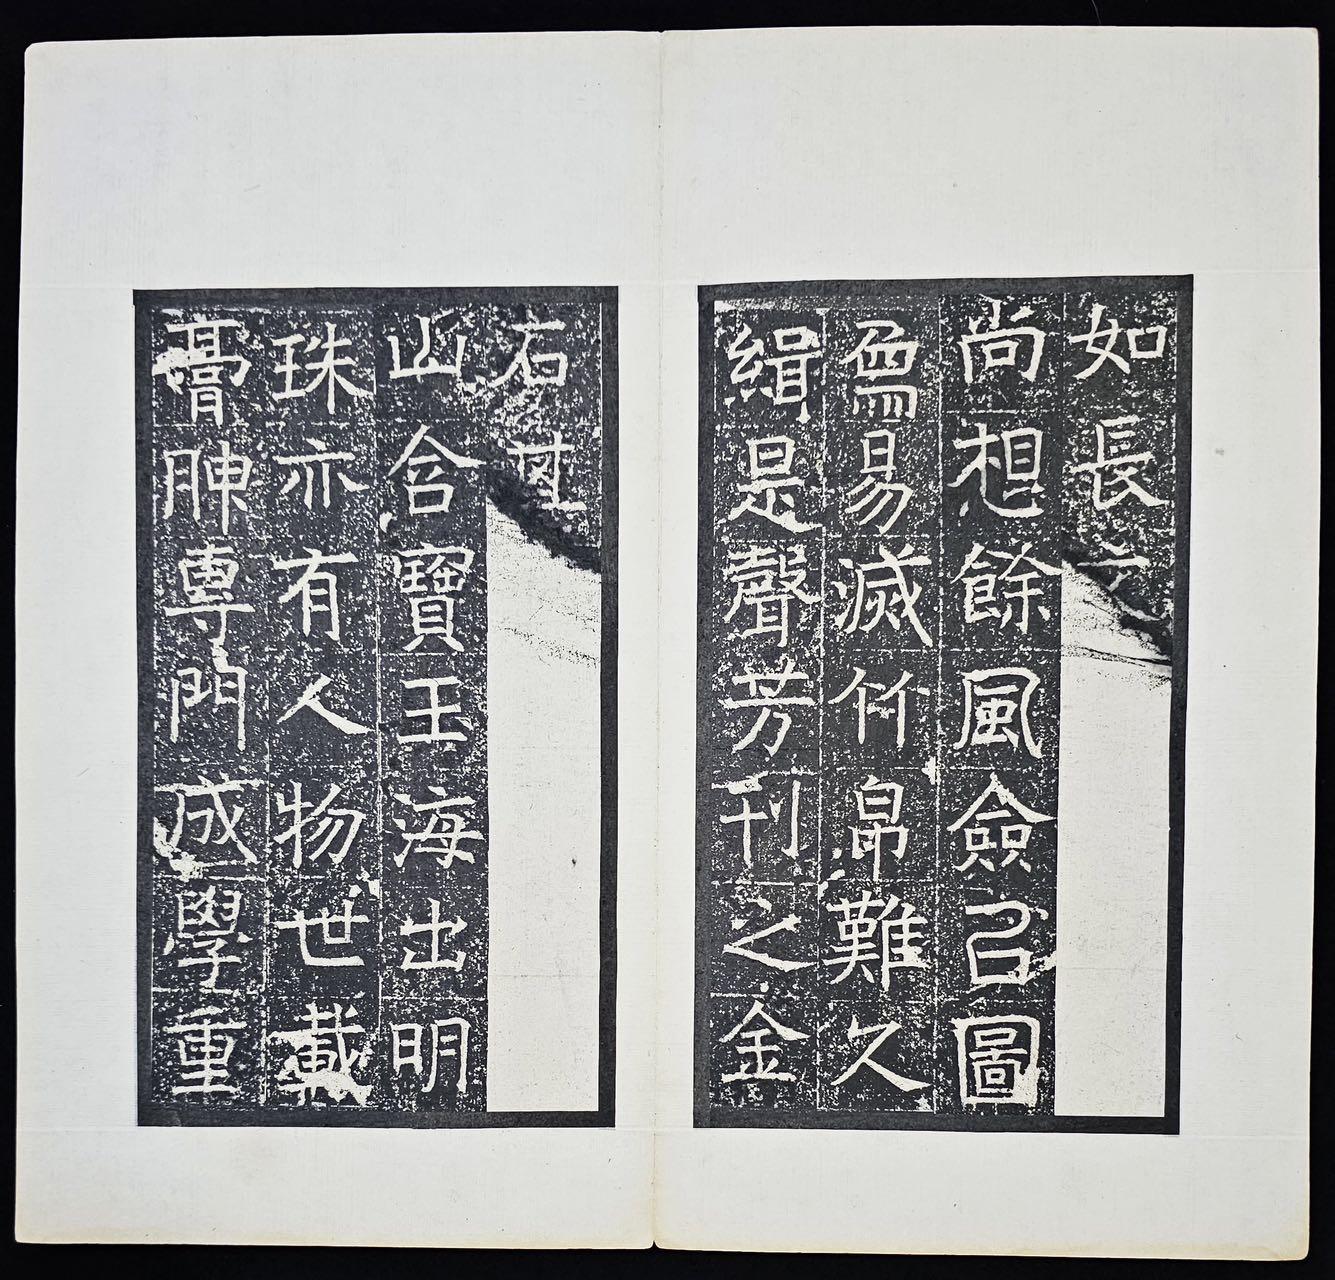 如長
尚想餘風僉㠯圖
易滅竹帛難久
緝是聲芳刊之金
石其
山含寶玉海出明
珠亦有人物世載
膏腴專門成學重